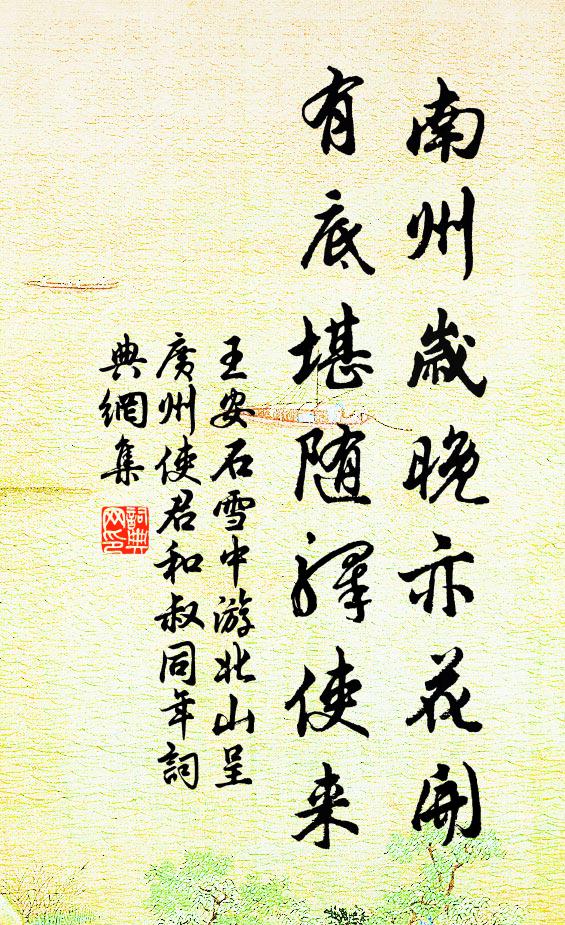 南州歲晚亦花開
有底堪随驛使来
王安石雪中游北山呈
廣州使君和叔同年詞
典網集
詞典
网印